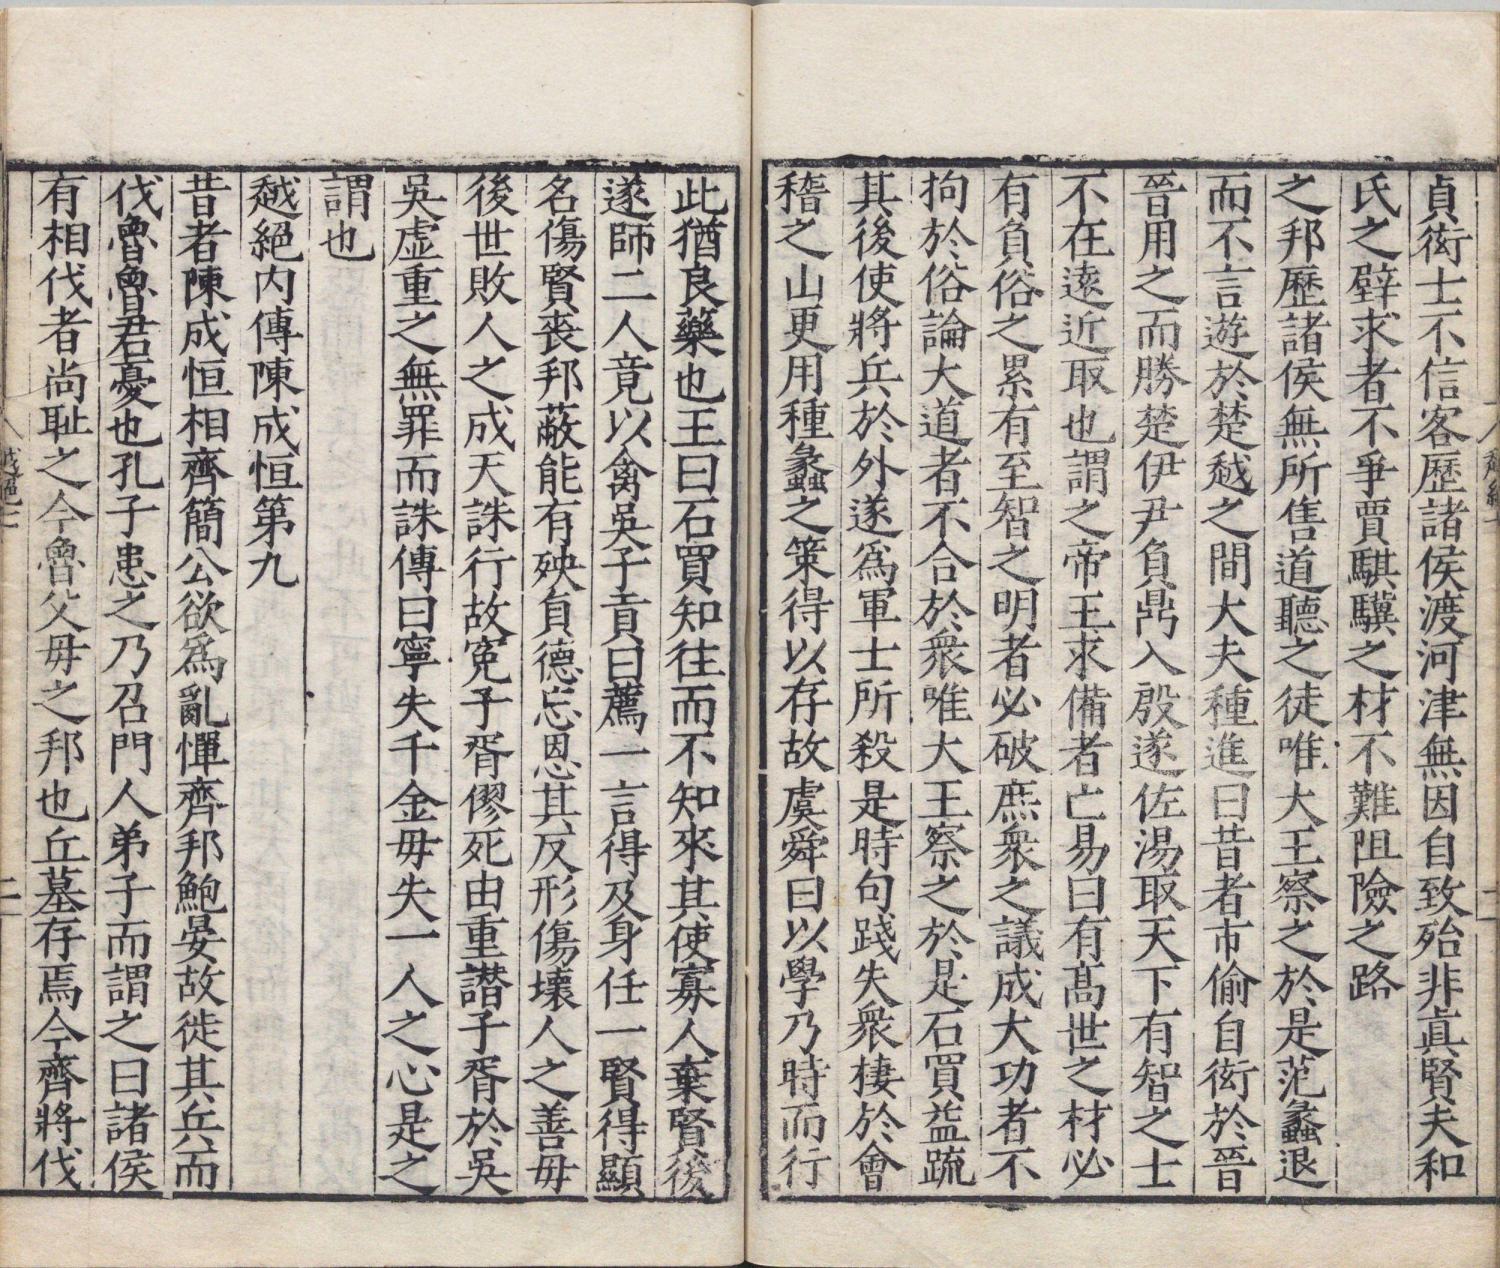 貞衒士不信客歷諸侯渡河津無因自致殆非眞賢夫和
氏之璧求者不爭賈騏驥之材不難阻險之路
之邦歷諸侯無所售道聽之徒唯大王察之於是范蠡退
而不言遊於楚越之間大夫種進曰昔者市偷自衒於晉
晉用之而勝楚伊尹負鼎入殷遂佐湯取天下有智之士
不在遠近取也謂之帝王求備者亡易曰有髙世之材必
有負俗之累有至智之明者必破庶衆之議成大功者不
拘於俗論大道者不合於衆唯大王察之於是石買益疏
其後使將兵於外遂爲軍士所殺是時句踐失衆棲於會
稽之山更用種蠡之策得以存故虞舜曰以學乃時而行
此猶良藥也王曰石買知往而不知來其使寡人棄賢後
遂師二人竟以禽吳子貢曰薦一言得及身任一賢得顯
名傷賢喪邦蔽能有殃負德忘恩其反形傷壞人之善毋
後世敗人之成天誅行故寃子胥僇死由重譖子胥於吳
吳虛重之無罪而誅傳曰寧失千金毋失一人之心是之
謂也
越絕內傳陳成恒第九
昔者陳成恒相齊簡公欲爲亂憚齊邦鮑晏故徙其兵而
伐魯魯君憂也孔子患之乃召門人弟子而謂之曰諸侯
有相伐者尚耻之今魯父毋之邦也丘墓存焉今齊將伐